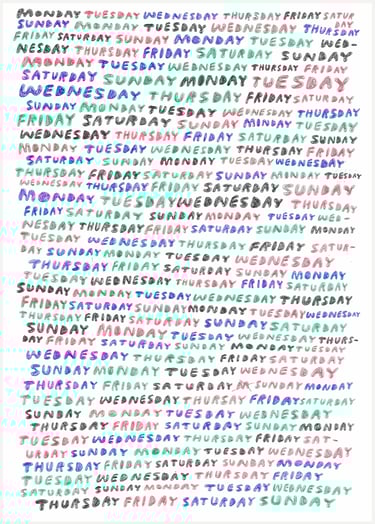 MONDAY TUESDAY WEDNESDAY THURSDAY FRIDAY SATUR
DAY
SUNDAY MONDAY TUESDAY WEDNESDAY THURSDAY
FRIDAY SATURDAY SUNDAY MONDAY TUESDAY WED-
NESDAY THURSDAY FRIDAY SATURDAY SUNDAY
MONDAY TUESDAY WEDNESDAY THURSDAY FRIDAY
SATURDAY SUNDAY MONDAY TUESDAY
WEDNESDAY THURSDAY FRIDAY SATURDAY
SUNDAY MONDAY TUESDAY WEDNESDAY THURSDAY
FRIDAY SATURDAY SUNDAY MONDAY TUESDAY
WEDNESDAY THURSDAY FRIDAY SATURDAY SUNDAY
MONDAY TUESDAY WEDNESDAY THURSDAY FRIDAY
SATURDAY SUNDAY MONDAY TUESDAY WEDNESDAY
THURSDAY FRIDAY SATURDAY SUNDAY MONDAY TUESDAY
WEDNESDAY THURSDAY FRIDAY SATURDAY SUNDAY
MONDAY TUESDAY WEDNESDAY THURSDAY
FRIDAY SATURDAY SUNDAY MONDAY TUESDAY WED-
NESDAY THURSDAY FRIDAY SATURDAY SUNDAY MONDAY
TUESDAY WEDNESDAY THURSDAY FRIDAY SATUR-
DAY SUNDAY MONDAY TUESDAY WEDNESDAY
THURSDAY FRIDAY SATURDAY SUNDAY MONDAY
TUESDAY WEDNESDAY THURSDAY FRIDAY SATURDAY
SUNDAY MONDAY TUESDAY WEDNESDAY THURSDAY
FRIDAY SATURDAY SUNDAY MONDAY TUESDAY WEDNESDAY
THURSDAY FRIDAY SATURDAY SUNDAY MONDAY TUESDAY WEDNESDAY
SUNDAY MONDAY TUESDAY WEDNESDAY THURS-
DAY FRIDAY SATURDAY SUNDAY MONDAY TUESDAY
WEDNESDAY THURSDAY FRIDAY SATURDAY
SUNDAY MONDAY TUESDAY WEDNESDAY
THURSDAY FRIDAY SATURDAY SUNDAY MONDAY
TUESDAY WEDNESDAY THURSAY FRIDAY SATURDAY
SUNDAY MONDAY TUESDAY WEDNESDAY
THURSDAY FRIDAY SATURDAY SUNDAY MONDAY
TUESDAY WEDNESDAY THURSDAY FRIDAY SAT-
URDAY SUNDAY MONDAY TUESDAY WEDNESDAY
THURSDAY FRIDAY SATURDAY SUNDAY MONDAY
TUESDAY WEDNESDAY THURSDAY FRIDAY
SATURDAY SUNDAY MONDAY TUESDAY WEDNESDAY
THURSDAY FRIDAY SATURDAY SUNDAY